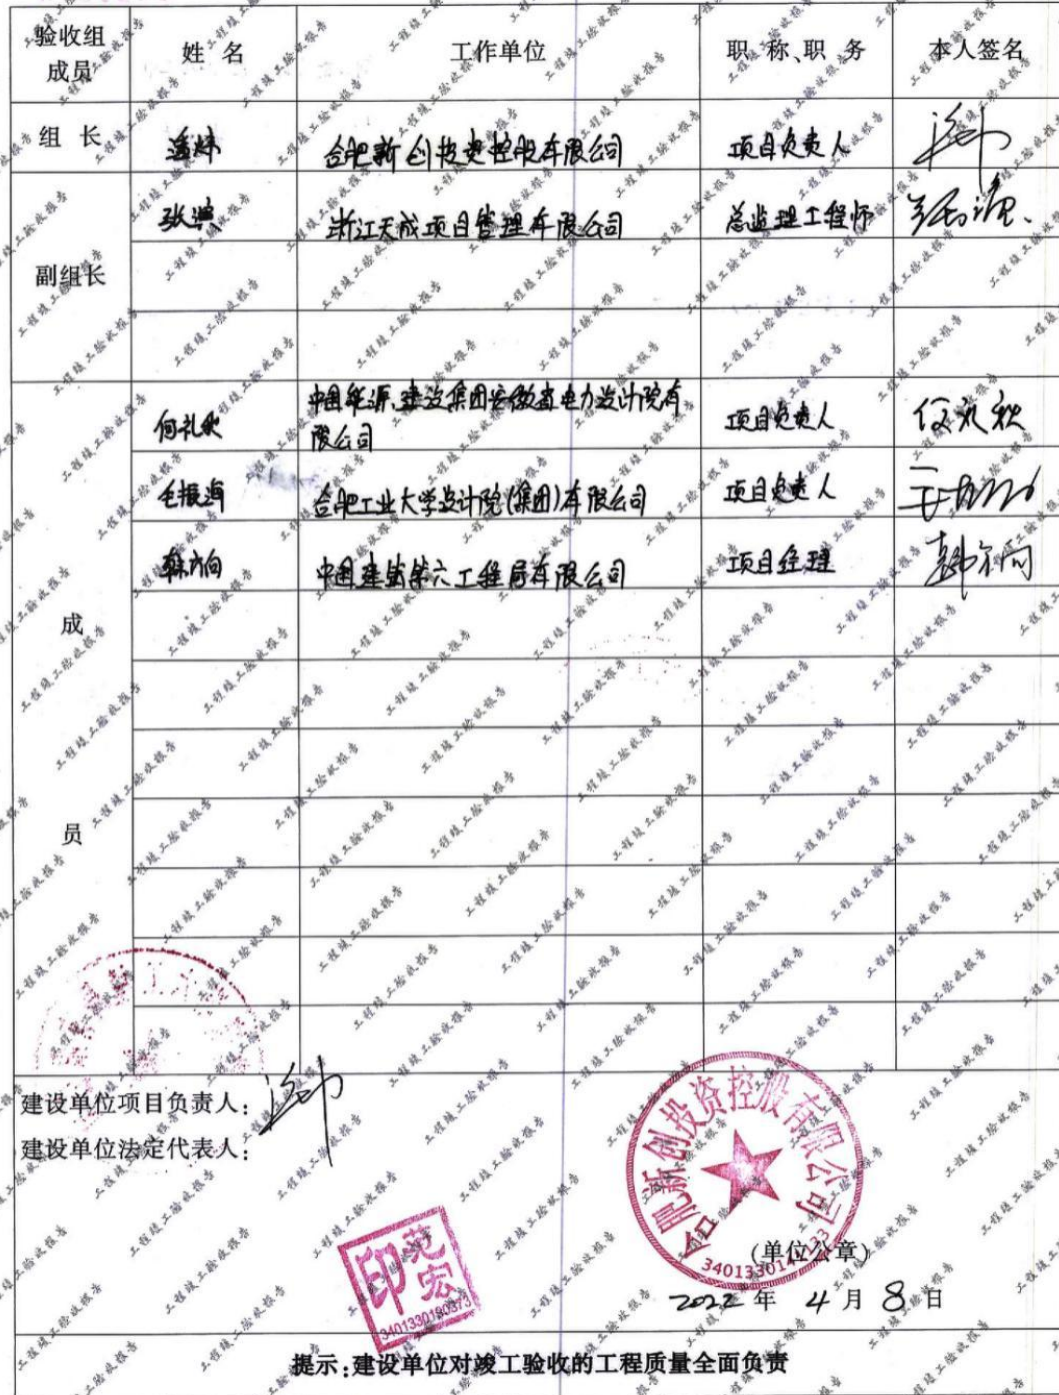 验收组成员 姓 名 工作单位 职 称、职 务 本人签名
组 长 合肥新创投资控股有限公司 项目负责人
副组长 浙江天成项目管理有限公司 总监理工程师
何礼秋 中国能源建设集团安徽省电力设计院有
限公司 项目负责人 何礼秋
毛振海 合肥工业大学设计院(集团)有限公司 项目负责人
中国建筑第六工程局有限公司 项目经理
成
员
建设单位项目负责人:
建设单位法定代表人:
合肥新创投资控股有限公司
范宏
印
3401330190373
(单位公章)
2022 年 4 月 8 日
提示:建设单位对竣工验收的工程质量全面负责
工程竣工验收报告